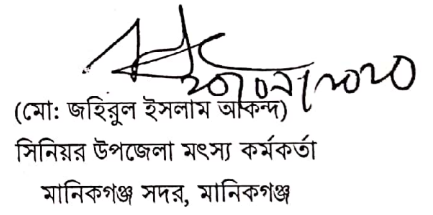 (মো: জহিরুল ইসলাম আকন্দ)
সিনিয়র উপজেলা মৎস্য কর্মকর্তা
মানিকগঞ্জ সদর, মানিকগঞ্জ